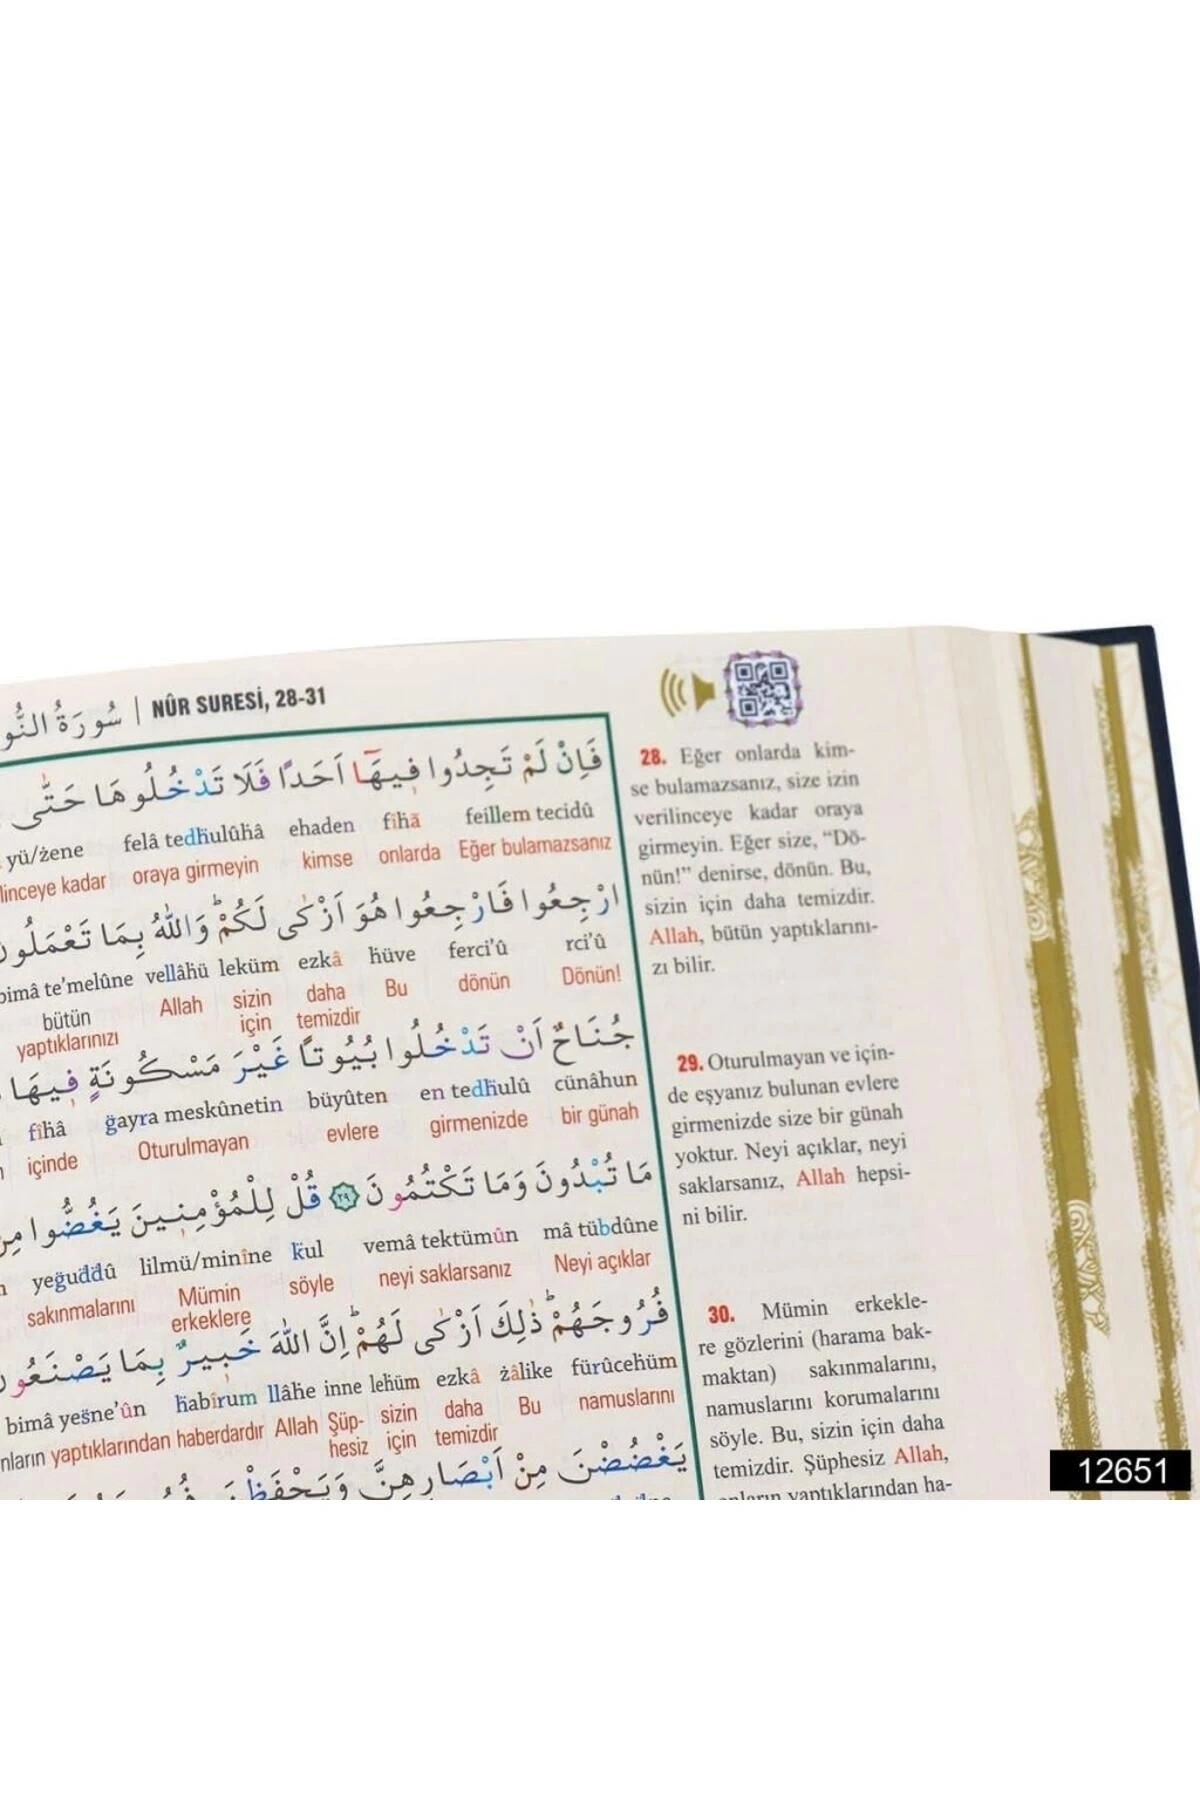 سُورَةُ النُّو | NÛR SURESİ, 28-31
فَاِنْ لَمْ تَجِدُوا ف۪يهَٓا اَحَدًا فَلَا تَدْخُلُوهَا حَتّٰى
feillem tecidû fîhâ ehaden felâ tedḣulûhâ yü/żene
Eğer bulamazsanız onlarda kimse oraya girmeyin linceye kadar
ارْجِعُوا فَارْجِعُوا هُوَ اَزْكٰى لَكُمْۜ وَاللّٰهُ بِمَا تَعْمَلُونَ
rci'û ferci'û hüve ezkâ leküm vellâhü bimâ te'melûne
Dönün! dönün Bu daha temizdir sizin için Allah bütün yaptıklarınızı
جُنَاحٌ اَنْ تَدْخُلُوا بُيُوتًا غَيْرَ مَسْكُونَةٍ ف۪يهَا
cünâhun en tedḣulû büyûten ğayra meskûnetin fîhâ
bir günah girmenizde evlere Oturulmayan içinde
مَا تُبْدُونَ وَمَا تَكْتُمُونَ ﴿٢٩﴾ قُلْ لِلْمُؤْمِن۪ينَ يَغُضُّوا مِنْ
mâ tübdûne vemâ tektümûn ḱul lilmü/minîne yeğuḋḋû
Neyi açıklar neyi saklarsanız söyle Mümin erkeklere sakınmalarını
فُرُوجَهُمْۜ ذٰلِكَ اَزْكٰى لَهُمْۜ اِنَّ اللّٰهَ خَب۪يرٌ بِمَا يَصْنَعُونَ
fürûcehüm żâlike ezkâ lehüm inne llâhe ḣabîrum bimâ yeṡne'ûn
namuslarını Bu daha temizdir sizin için Şüphesiz Allah haberdardır yaptıklarından nların
يَغْضُضْنَ مِنْ اَبْصَارِهِنَّ وَيَحْفَظْنَ
28. Eğer onlarda kim-
se bulamazsanız, size izin
verilinceye kadar oraya
girmeyin. Eğer size, “Dö-
nün!” denirse, dönün. Bu,
sizin için daha temizdir.
Allah, bütün yaptıklarını-
zı bilir.
29. Oturulmayan ve için-
de eşyanız bulunan evlere
girmenizde size bir günah
yoktur. Neyi açıklar, neyi
saklarsanız, Allah hepsi-
ni bilir.
30. Mümin erkekle-
re gözlerini (harama bak-
maktan) sakınmalarını,
namuslarını korumalarını
söyle. Bu, sizin için daha
temizdir. Şüphesiz Allah,
onların yaptıklarından ha-
12651